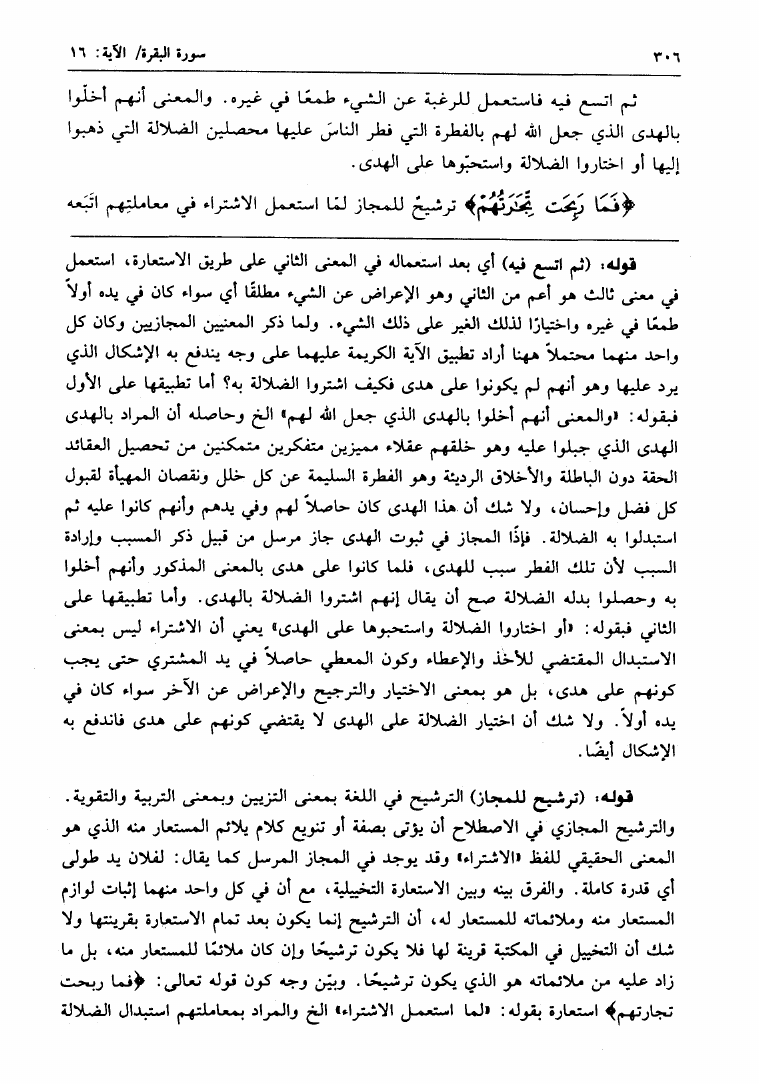 ٣٠٦ سورة البقرة/ الآية: ١٦
ثم اتسع فيه فاستعمل للرغبة عن الشيء طمعًا في غيره. والمعنى أنهم أخلّوا
بالهدى الذي جعل الله لهم بالفطرة التي فطر الناسَ عليها محصلين الضلالة التي ذهبوا
إليها أو اختاروا الضلالة واستحبّوها على الهدى.
﴿فَمَا رَبِحَت تِّجَٰرَتُهُمْ﴾ ترشيحٌ للمجاز لمّا استعمل الاشتراء في معاملتِهم اتَّبَعه
قوله: (ثم اتسع فيه) أي بعد استعماله في المعنى الثاني على طريق الاستعارة، استعمل
في معنى ثالث هو أعم من الثاني وهو الإعراض عن الشيء مطلقًا أي سواء كان في يده أولاً
طمعًا في غيره واختيارًا لذلك الغير على ذلك الشيء. ولما ذكر المعنيين المجازيين وكان كل
واحد منهما محتملاً ههنا أراد تطبيق الآية الكريمة عليهما على وجه يندفع به الإشكال الذي
يرد عليها وهو أنهم لم يكونوا على هدى فكيف اشتروا الضلالة به؟ أما تطبيقها على الأول
فبقوله: «والمعنى أنهم أخلوا بالهدى الذي جعل الله لهم» الخ وحاصله أن المراد بالهدى
الهدى الذي جبلوا عليه وهو خلقهم عقلاء مميزين متفكرين متمكنين من تحصيل العقائد
الحقة دون الباطلة والأخلاق الرديئة وهو الفطرة السليمة عن كل خلل ونقصان المهيأة لقبول
كل فضل وإحسان، ولا شك أن هذا الهدى كان حاصلاً لهم وفي يدهم وأنهم كانوا عليه ثم
استبدلوا به الضلالة. فإذًا المجاز في ثبوت الهدى جاز مرسل من قبيل ذكر المسبب وإرادة
السبب لأن تلك الفطر سبب للهدى، فلما كانوا على هدى بالمعنى المذكور وأنهم أخلوا
به وحصلوا بدله الضلالة صح أن يقال إنهم اشتروا الضلالة بالهدى. وأما تطبيقها على
الثاني فبقوله: «أو اختاروا الضلالة واستحبوها على الهدى» يعني أن الاشتراء ليس بمعنى
الاستبدال المقتضي للأخذ والإعطاء وكون المعطي حاصلاً في يد المشتري حتى يجب
كونهم على هدى، بل هو بمعنى الاختيار والترجيح والإعراض عن الآخر سواء كان في
يده أولاً. ولا شك أن اختيار الضلالة على الهدى لا يقتضي كونهم على هدى فاندفع به
الإشكال أيضًا.
قوله: (ترشيح للمجاز) الترشيح في اللغة بمعنى التزيين وبمعنى التربية والتقوية.
والترشيح المجازي في الاصطلاح أن يؤتى بصفة أو تنويع كلام يلائم المستعار منه الذي هو
المعنى الحقيقي للفظ «الاشتراء» وقد يوجد في المجاز المرسل كما يقال: لفلان يد طولى
أي قدرة كاملة. والفرق بينه وبين الاستعارة التخييلية، مع أن في كل واحد منهما إثبات لوازم
المستعار منه وملائماته للمستعار له، أن الترشيح إنما يكون بعد تمام الاستعارة بقرينتها ولا
شك أن التخييل في المكنية قرينة لها فلا يكون ترشيحًا وإن كان ملائمًا للمستعار منه، بل ما
زاد عليه من ملائماته هو الذي يكون ترشيحًا. وبيّن وجه كون قوله تعالى: ﴿فما ربحت
تجارتهم﴾ استعارة بقوله: «لما استعمل الاشتراء» الخ والمراد بمعاملتهم استبدال الضلالة